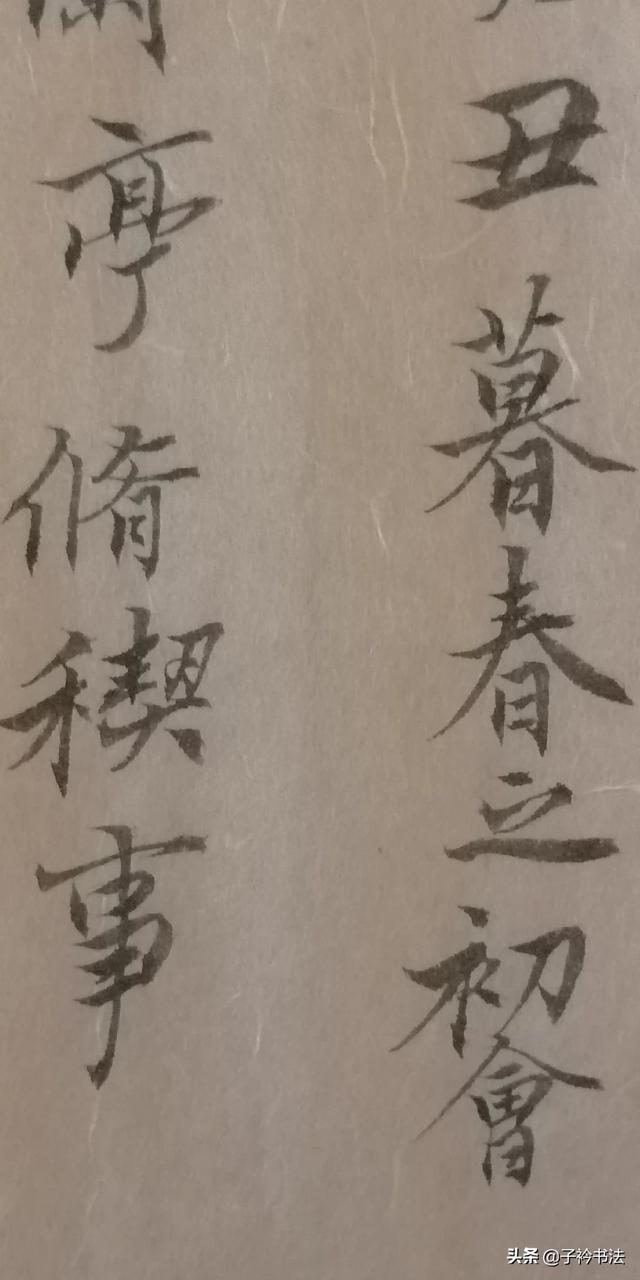 丑暮春之初會
蘭亭脩稧事
头条 @子衿书法